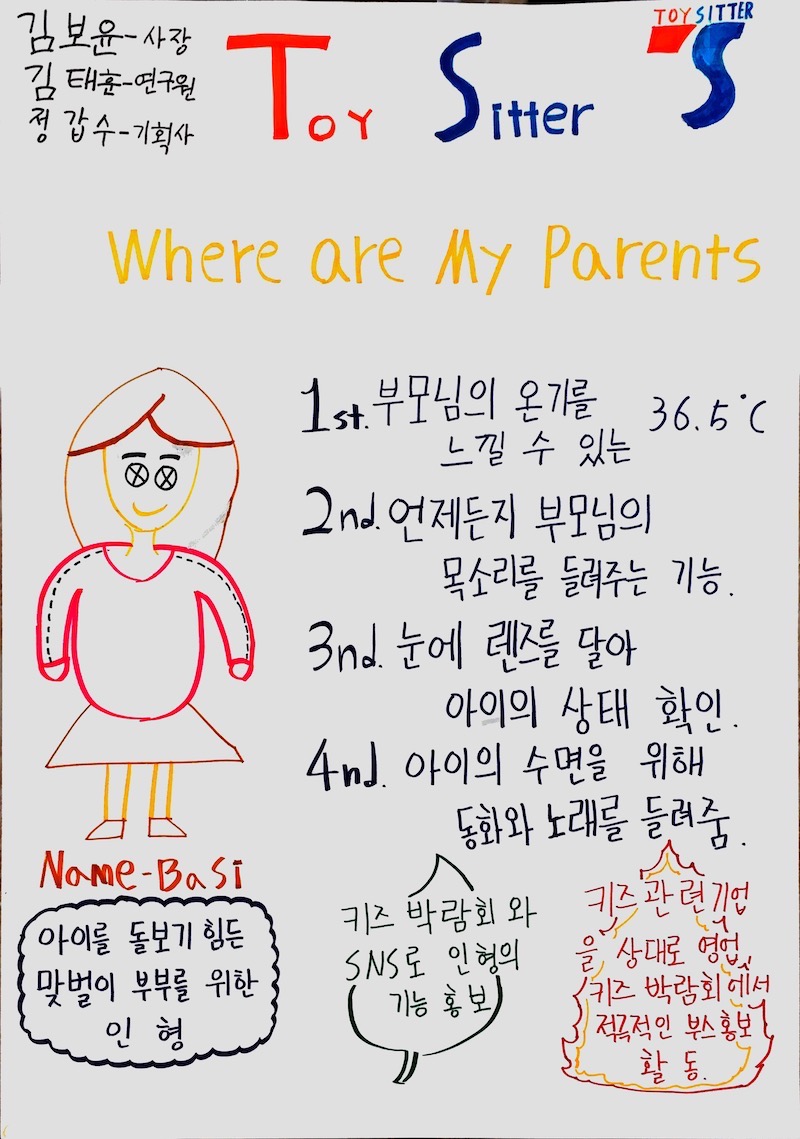 김보윤-사장
김태훈-연구원
정갑수-기획사
Toy Sitter
TOYSITTER
TS
Where are My Parents
1st. 부모님의 온기를 36.5°C
느낄 수 있는
2nd. 언제든지 부모님의
목소리를 들려주는 기능.
3nd. 눈에 렌즈를 달아
아이의 상태 확인.
4nd. 아이의 수면을 위해
동화와 노래를 들려줌.
Name-Basi
아이를 돌보기 힘든
맞벌이 부부를 위한
인형
키즈 박람회 와
SNS로 인형의
기능 홍보
키즈 관련기업
을 상대로 영업,
키즈 박람회에서
적극적인 부스홍보
활동.